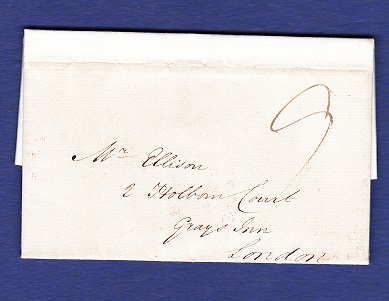 9
Mr Ellison
2 Holborn Court
Grays Inn
London